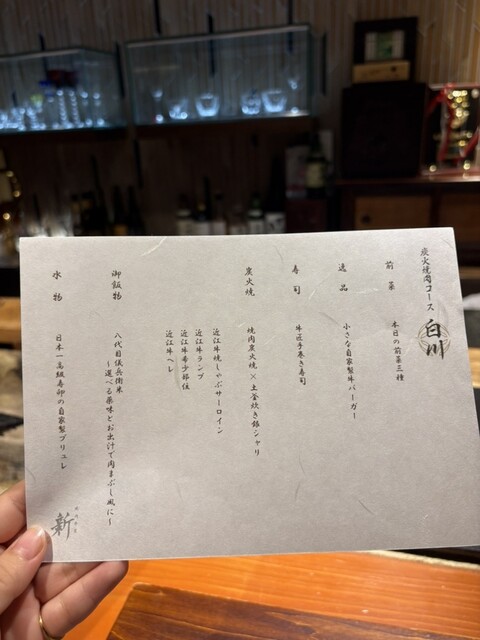 炭火焼肉コース 白川
前菜
本日の前菜三種
逸品
小さな自家製牛バーガー
寿司
牛匠手巻き寿司
炭火焼
焼肉炭火焼×土釜炊き銀シャリ
近江牛焼しゃぶサーロイン
近江牛ランプ
近江牛希少部位
近江牛ヘレ
御飯物
八代目儀兵衛米
～選べる薬味とお出汁で肉まぶし風に～
水物
日本一高級寿卵の自家製ブリュレ
新